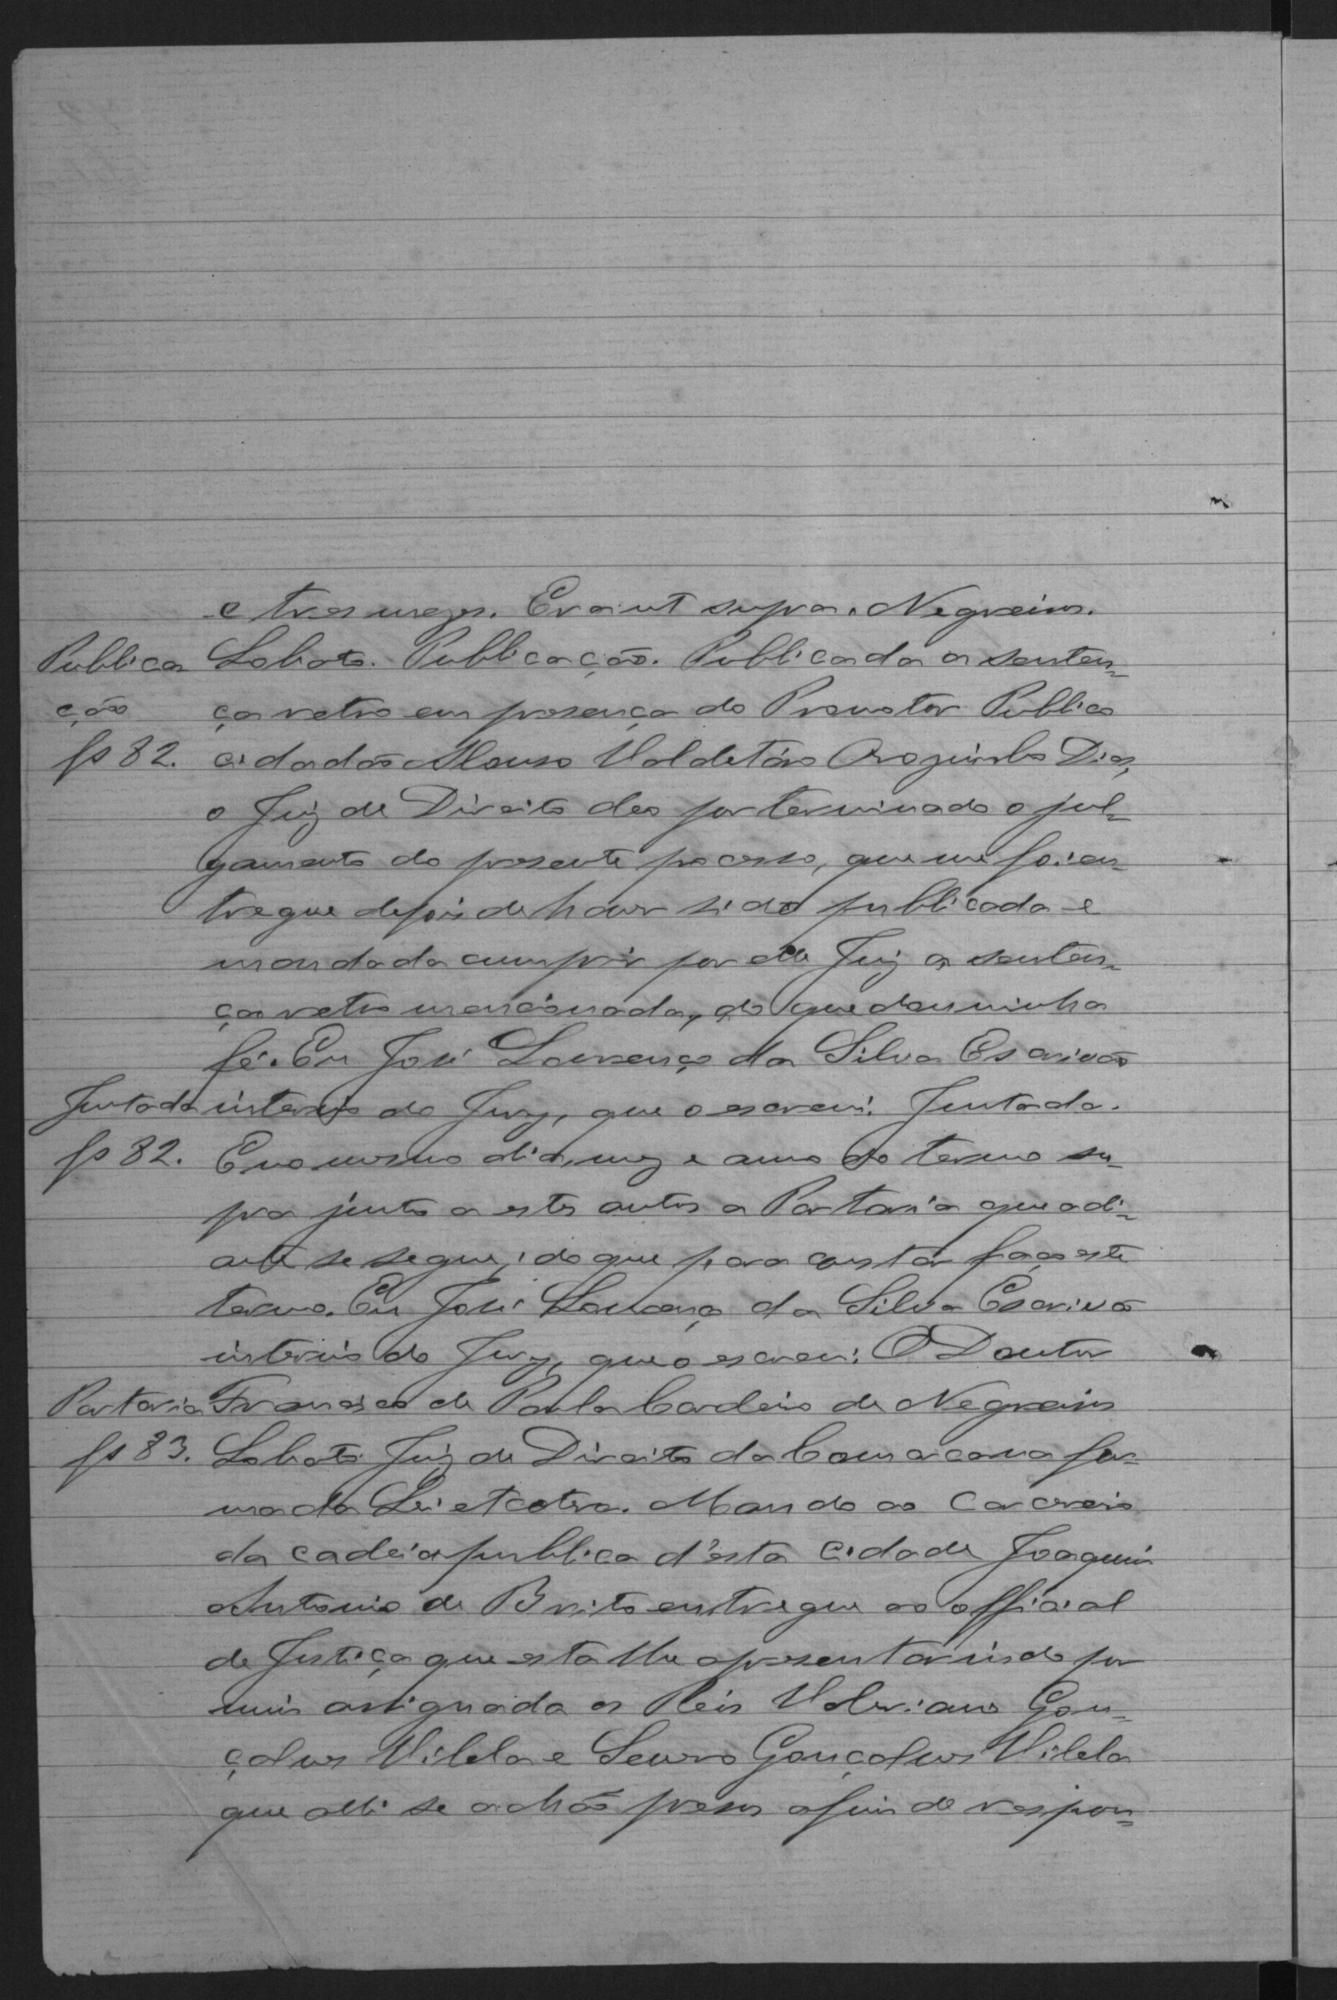 e tres mezes. Era ut supra. Negreiros.
Publica Lobato. Publicação. Publicada a senten-
ção ça retro em presença do Promotor Publico
fs 82. cidadão Afonso Valdetáro Orozimbo Dias,
o Juiz de Direito deo por terminado o jul-
gamento do presente processo, que me foi en-
tregue depois de haver sido publicada e
mandada cumprir por elle Juiz a senten-
ça retro mencionada, do que dou minha
fé. Eu José Lourenço da Silva Escrivão
Juntada interino do Jury, que o escrevi. Juntada.
fs 82. E no mesmo dia, mez e anno do termo su-
pra junto a estes autos a Portaria que adi-
ante se segue; do que para constar faço este
termo. Eu José Lourenço da Silva Escrivão
interino do Jury, que o escrevi. O Doutor
Portaria Francisco de Paula Cordeiro de Negreiros
fs 83. Lobato Juiz de Direito da Comarca na for-
ma da Lei etcetera. Mando ao Carcereiro
da cadeia publica d'esta cidade Joaquim
Antonio de Brito entregue ao official
de Justiça que esta lhe apresentar indo por
mim assignada os Réis Valeriano Gon-
çalves Vilela e Lauro Gonçalves Vilela
que alli se achão presos afim de respon-